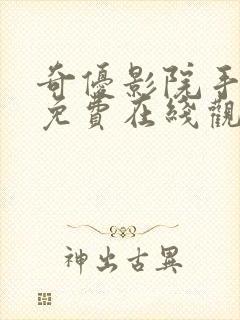 奇優影院手
免費在綫觀
神出古異